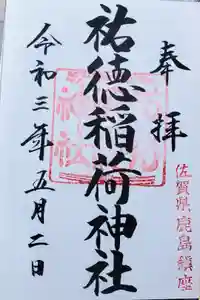 奉拝
佐賀県鹿島鎮座
祐徳稲荷神社
令和三年五月二日